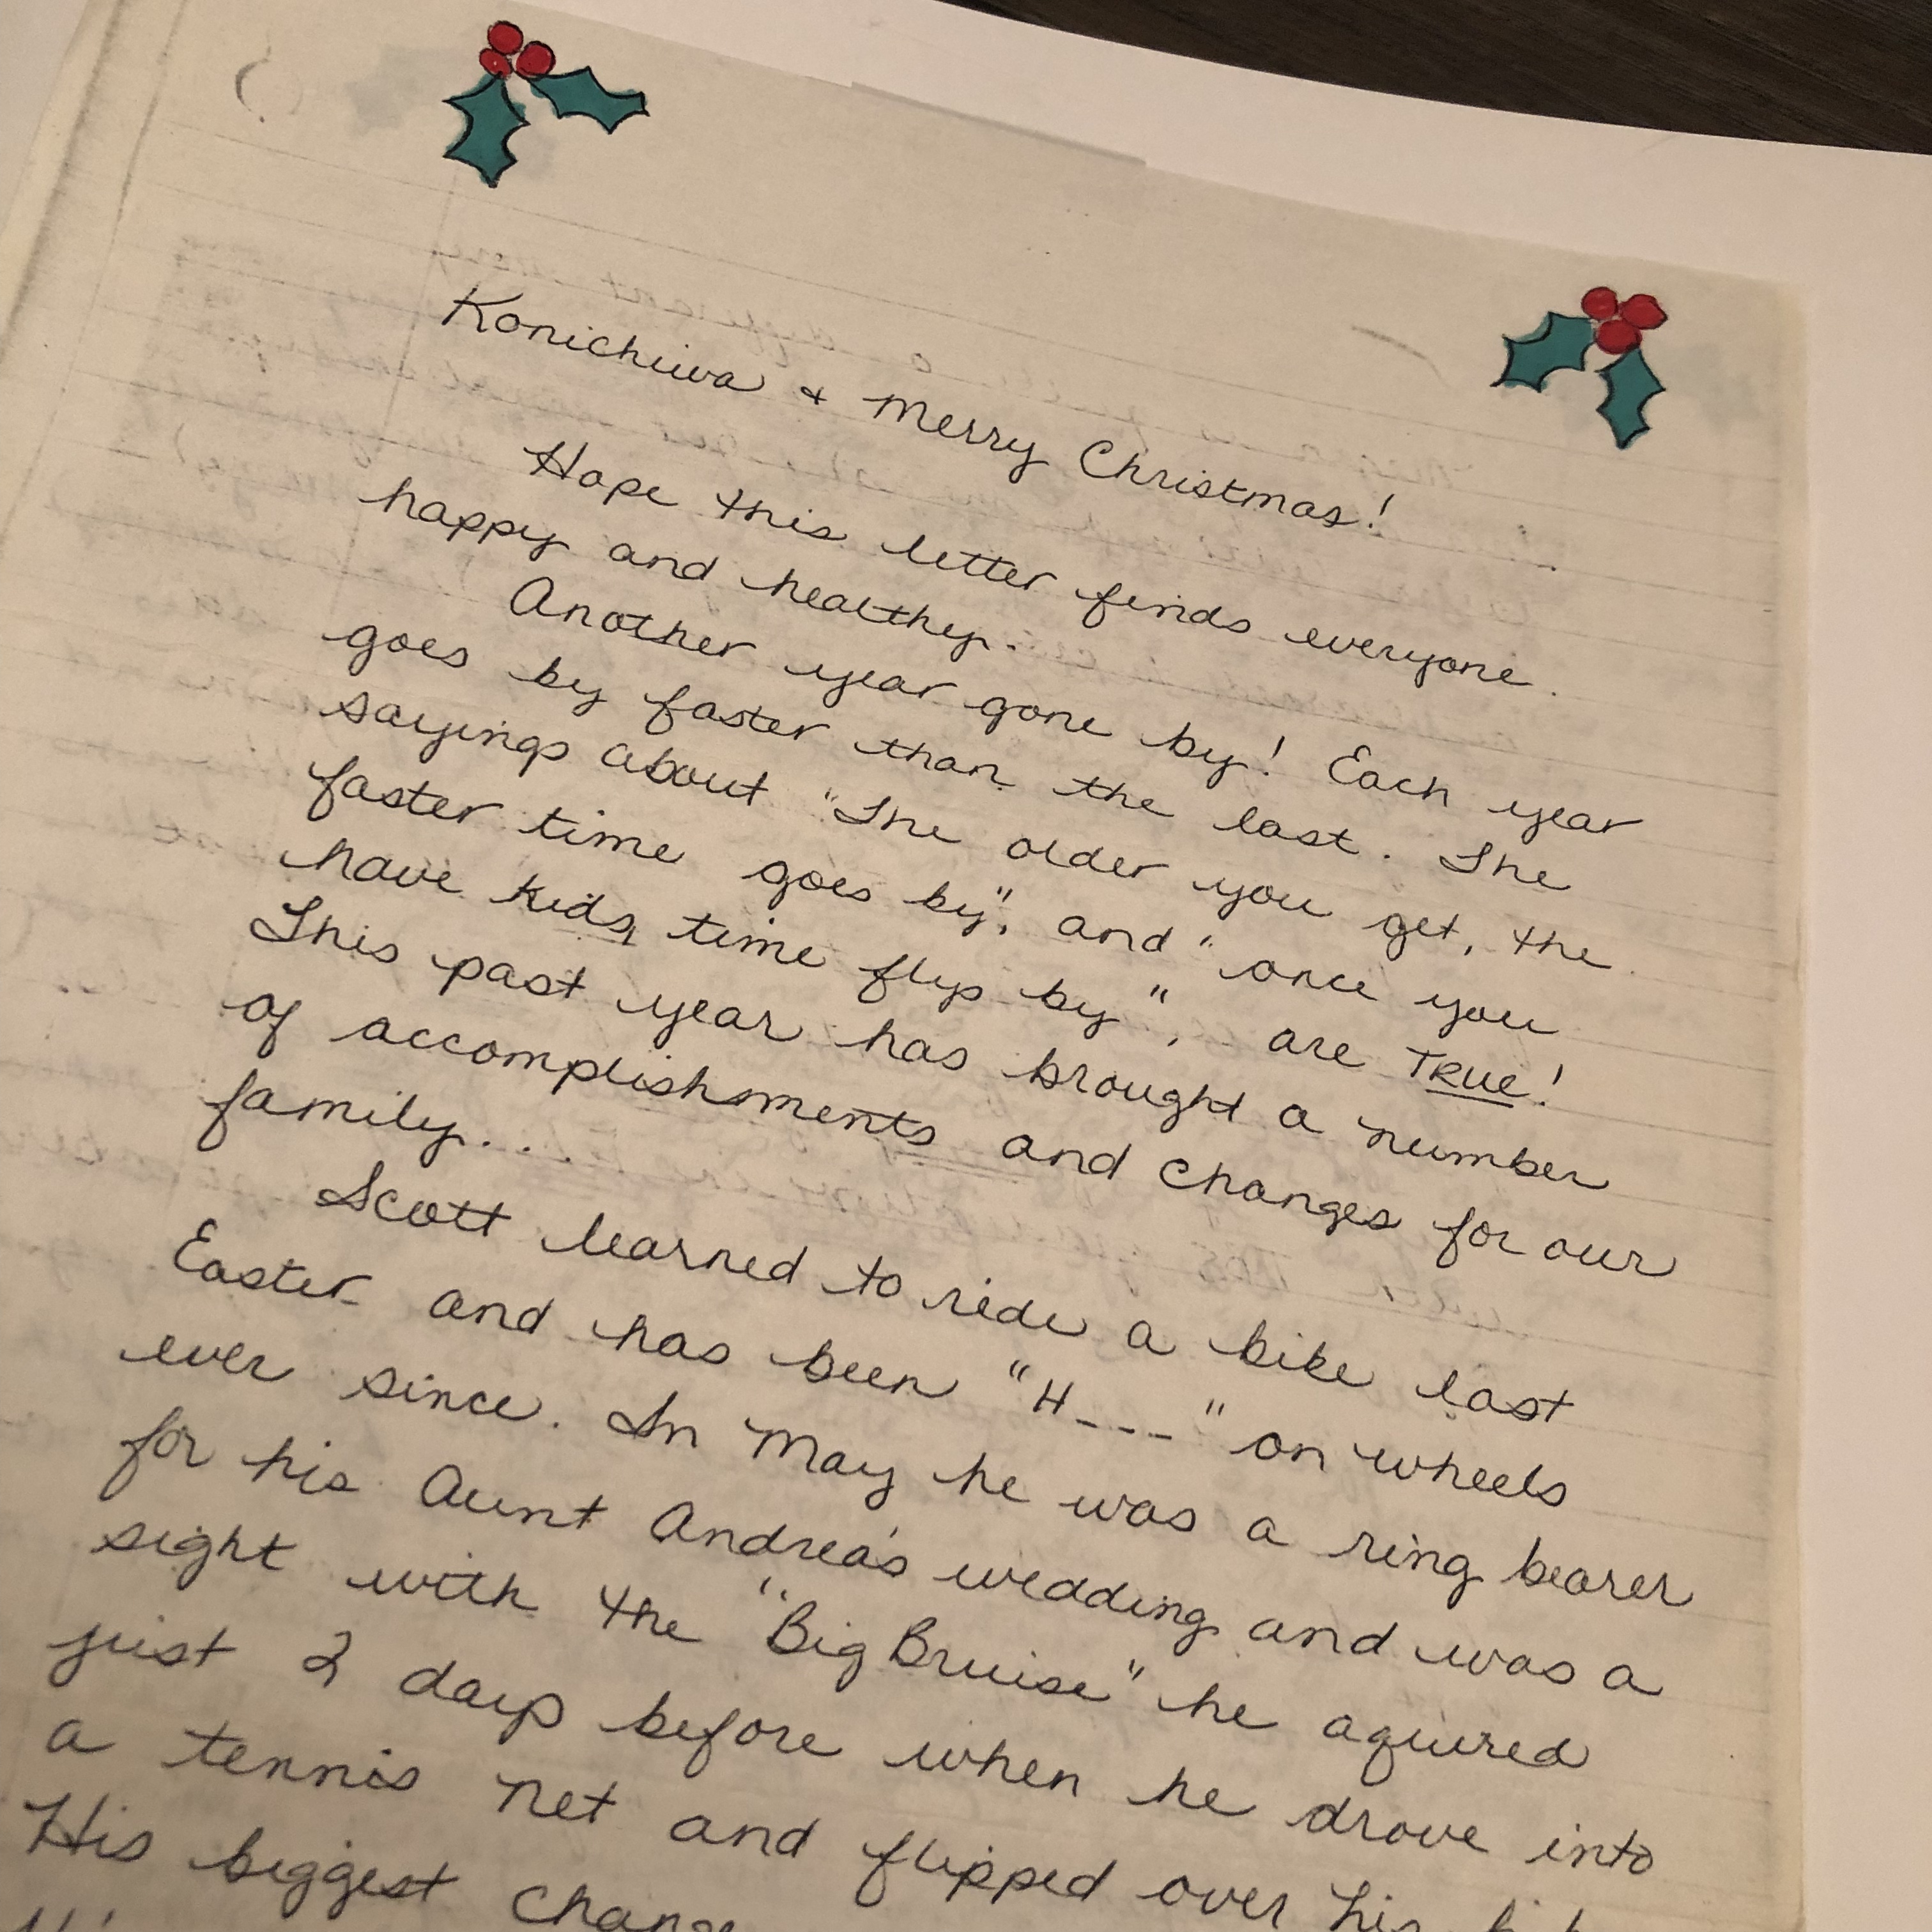 Konichiwa + Merry Christmas!
Hope this letter finds everyone
happy and healthy.
Another year gone by! Each year
goes by faster than the last. The
sayings about "The older you get, the
faster time goes by", and "once you
have kids, time flys by", are TRUE!
This past year has brought a number
of accomplishments and changes for our
family...
Scott learned to ride a bike last
Easter and has been "H---" on wheels
ever since. In May he was a ring bearer
for his Aunt Andrea's wedding and was a
sight with the "Big Bruise" he aquired
just 2 days before when he drove into
a tennis net and flipped over his
His biggest